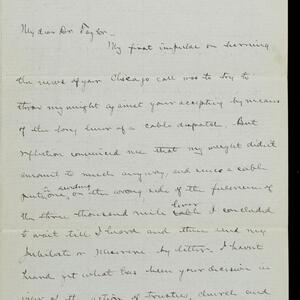 My dear Dr. Taylor—
My first impulse on learning
the news of your Chicago call was to try to
throw my weight against your accepting by means
of the long lever of a cable dispatch. But
reflection convinced me that my weight didn't
amount to much anyway, and since a cable
in sending
puts one, on the wrong side of the fulcrum of
lever
the three thousand mile cable I concluded
to wait till I heard and then send my
Jubilate or Miserere by letter. I haven't
heard yet what has been your decision in
view of the action of trustees, church and